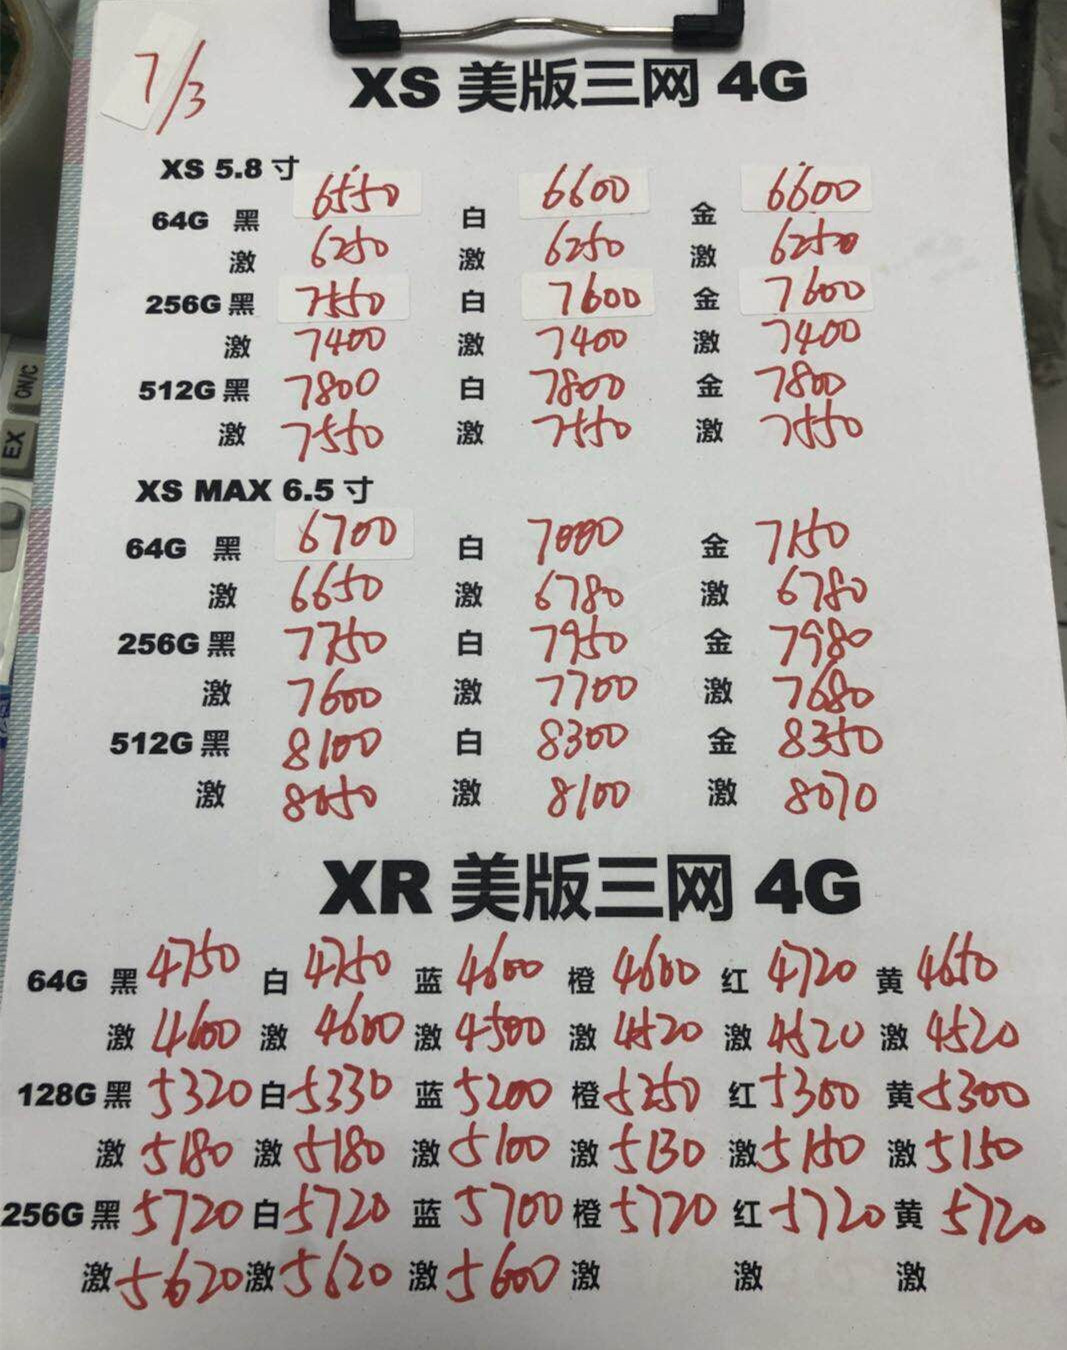 7/3
XS 美版三网 4G
XS 5.8 寸
64G 黑 6550 白 6600 金 6600
激 6250 激 6250 激 6250
256G 黑 7550 白 7600 金 7600
激 7400 激 7400 激 7400
512G 黑 7800 白 7800 金 7800
激 7550 激 7550 激 7550
XS MAX 6.5 寸
64G 黑 6700 白 7000 金 7150
激 6650 激 6780 激 6780
256G 黑 7750 白 7950 金 7980
激 7600 激 7700 激 7680
512G 黑 8100 白 8300 金 8350
激 8050 激 8100 激 8070
XR 美版三网 4G
64G 黑 4750 白 4750 蓝 4600 橙 4600 红 4720 黄 4650
激 4600 激 4600 激 4500 激 4520 激 4520 激 4520
128G 黑 5320 白 5330 蓝 5200 橙 5250 红 5300 黄 5300
激 5180 激 5180 激 5100 激 5130 激 5150 激 5150
256G 黑 5720 白 5720 蓝 5700 橙 5720 红 5720 黄 5720
激 5620 激 5620 激 5600 激 激 激
ON/C
EX